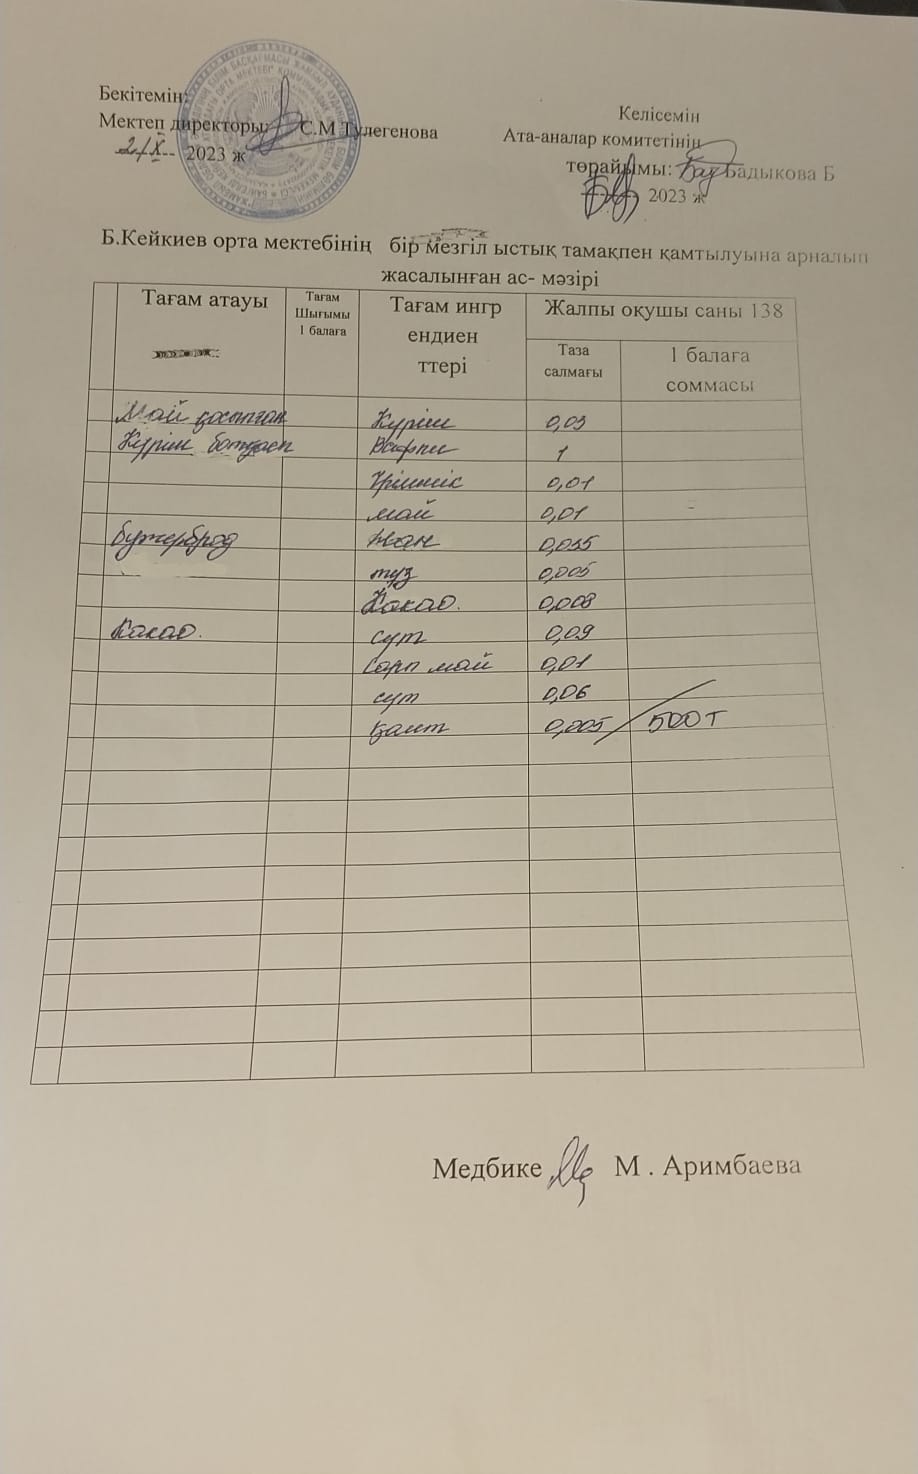 Бекітемін:
Мектеп директоры: С.М Тулегенова
2023 ж
Келісемін
Ата-аналар комитетінің
төрайымы: Бадыкова Б
2023 ж
Б.Кейкиев орта мектебінің бір мезгіл ыстық тамақпен қамтылуына арналып
жасалынған ас- мәзірі
Тағам атауы
Тағам
Шығымы
1 балаға
Тағам ингр
ендиен
ттері
Жалпы оқушы саны 138
Таза
салмағы
1 балаға
соммасы
Май қосылған Күріш 0,03
Күріш ботқасы Вафли 1
Ірімшік 0,01
май 0,01
бутерброд Нан 0,035
тұз 0,005
Какао. 0,008
Какао. сүт 0,09
Сары май 0,01
сүт 0,06
қант 0,005 500 т
Медбике М . Аримбаева